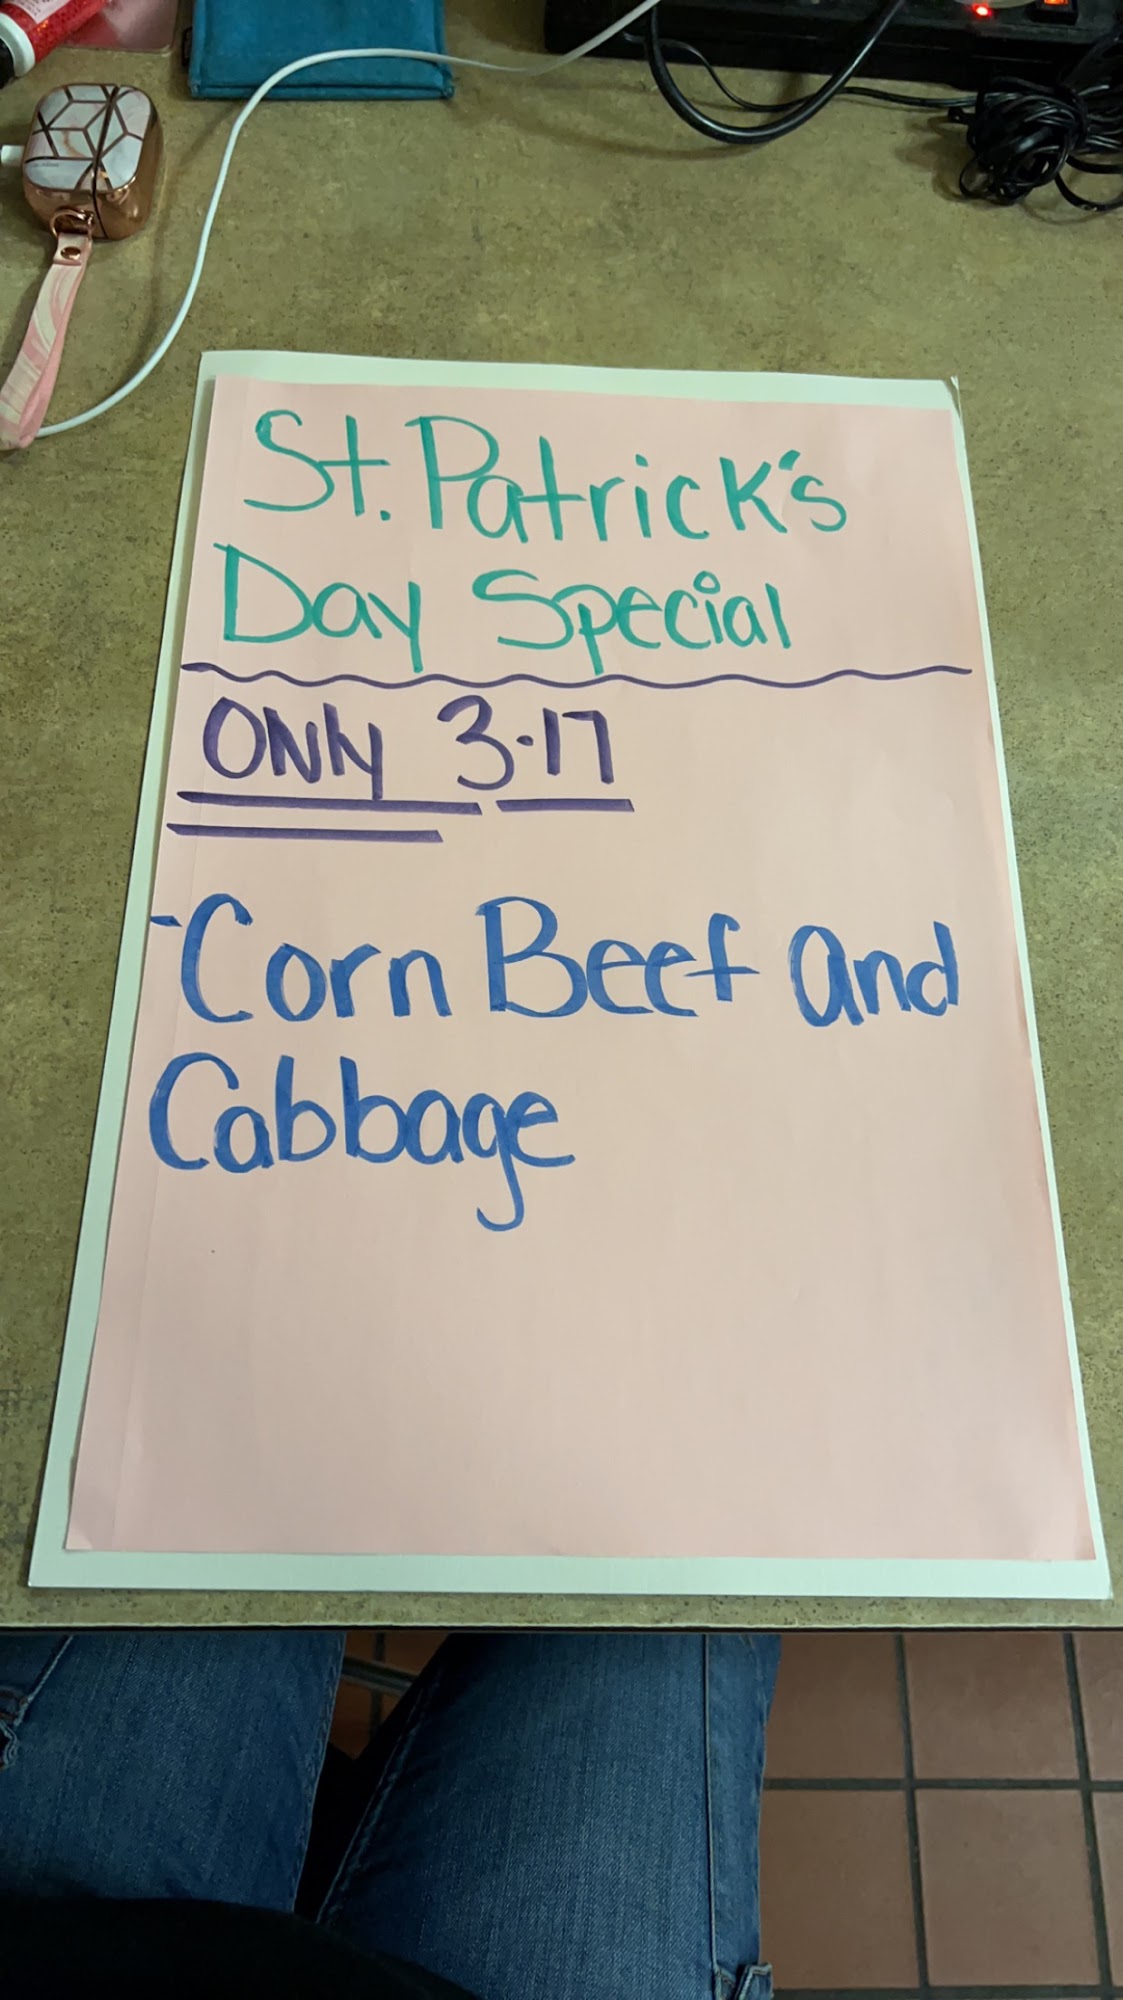 St. Patrick's
Day Special
ONly 3.17
-Corn Beef and
Cabbage